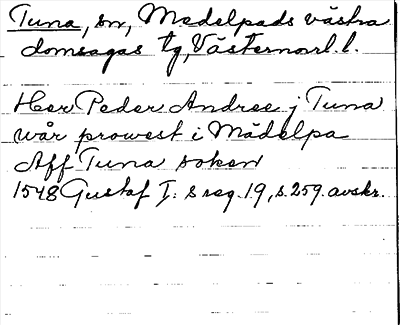 Tuna, sn, Medelpads västra
domsagas tg, Västernorl. l.
Her Peder Andree j Tuna
wår prowest i Mädelpa
Aff Tuna soken
1548 Gustaf I: s reg. 19, s. 259. avskr.